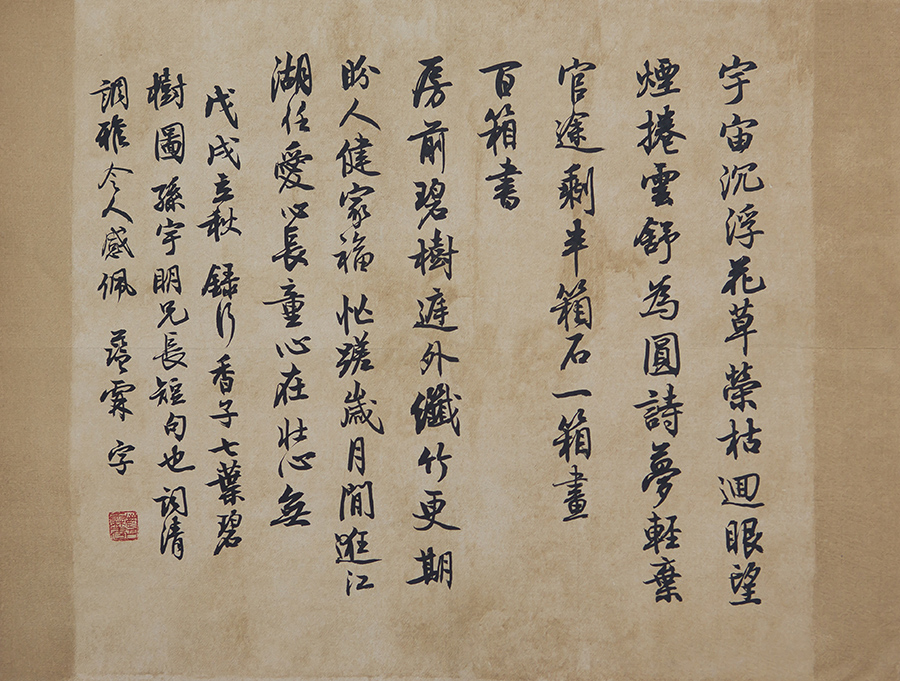 宇宙沉浮花草榮枯迴眼望
煙捲雲舒為圓詩夢輕棄
官途剩半箱石一箱畫
百箱書
房前碧樹遮外纖竹更期
盼人健家福忙蹉歲月閒逛江
湖任愛心長童心在壯心無
戊戌立秋 錄行香子七葉碧
樹圖 孫宇明兄長短句也 詞清
調雅令人感佩 霖字